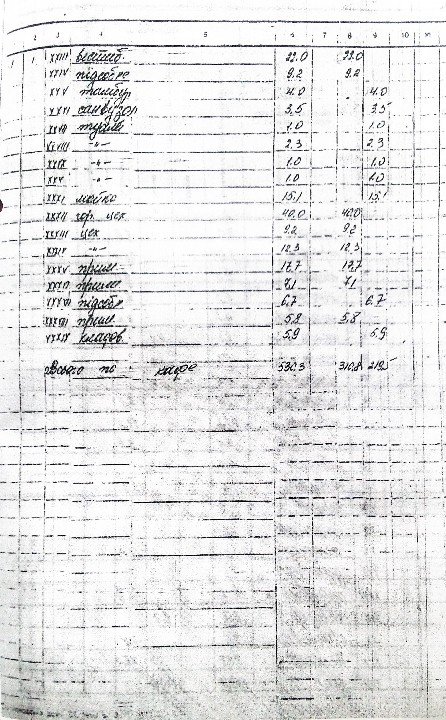 2 3 4 5 6 7 8 9 10 11
1 1 XXIII вестиб. 22.0 22.0
XXIV підсобне 9.2 9.2
XXV тамбур 4.0 4.0
XXVI санвузол 3.5 3.5
XXVII туалет 1.0 1.0
XXVIII -"- 2.3 2.3
XXIX -"- 1.0 1.0
XXX -"- 1.0 1.0
XXXI мойка 15.1 15.1
XXXII гор. цех 40.0 40.0
XXXIII цех 9.2 9.2
XXXIV -"- 12.3 12.3
XXXV прим. 17.7 17.7
XXXVI прим. 7.1 7.1
XXXVII підсобн 6.7 6.7
XXXVIII прим. 5.8 5.8
XXXIX кладов. 5.9 5.9
Всього по кафе 530.3 310.8 219.5